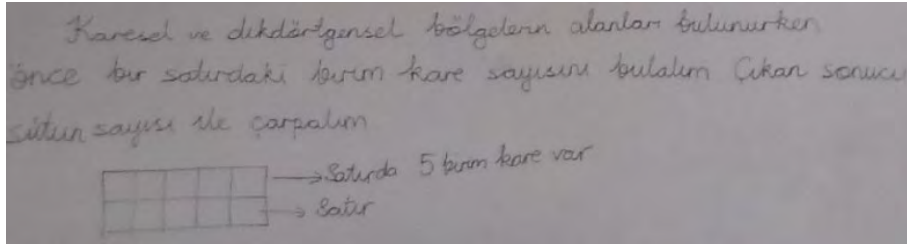 Karesel ve dikdörtgensel bölgelerin alanları bulunurken
önce bir satırdaki birim kare sayısını bulalım Çıkan sonucu
sütun sayısı ile çarpalım
→ Satırda 5 birim kare var
→ Satır